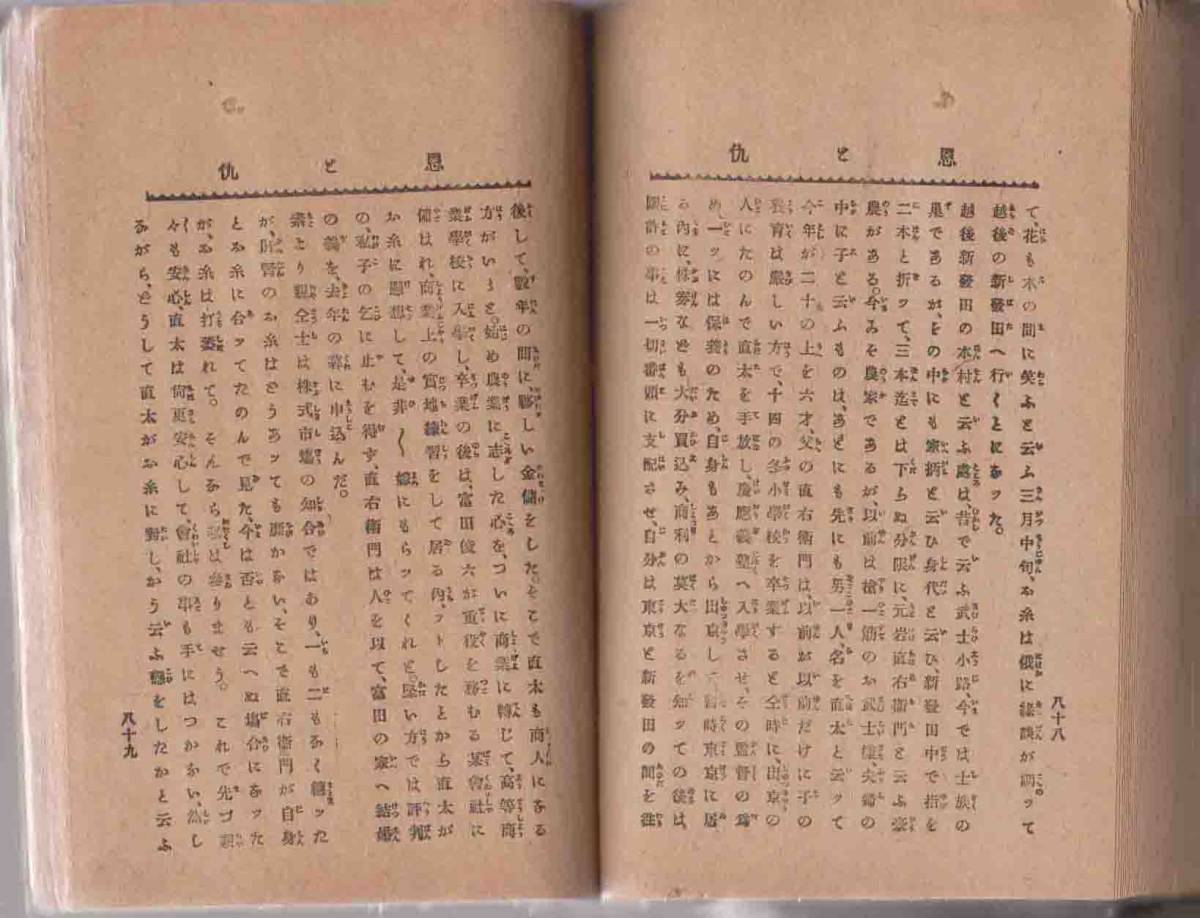 恩と仇
て、花も木の間に笑ふと云ふ三月中旬、お糸は俄に縁談が調ツて
越後の新發田へ行くことになツた。
越後新發田の木村と云ふ處は、昔で云ふ武士小路、今では士族の
巣であるが、その中にも家柄と云ひ身代と云ひ、新發田中で指を
二本と折ツて、三本迄とは下らぬ分限に、元岩直右衛門と云ふ豪
農がある。今みそ農家であるが以前は槍一筋のお武士様、夫婦の
中に子と云ふものは、あとにも先にも男一人、名を直太と云ツて
今年が二十の上を六才、父の直右衛門は、以前が以前だけに子の
養育は嚴しい方で、十四の冬小學校を卒業すると仝時に、出京の
人にたのんで直太を手放し、慶應義塾へ入學させ、その監督の爲
め、一ツには保養のため、自身もあとから出京して當時東京に居
る內に、株劵なども大分買込み、商利の莫大なるを知ツての後は、
田畑の事は一切番頭に支配させ、自分は東京と新發田の間を往
八十八
恩と仇
後して、數年の間に、夥しい金儲をした。そこで直太も商人になる
方がいゝと。始め農業に志した心を、ついに商業に轉じて、高等商
業學校に入學し、卒業の後は、富田俊六が重役を務むる某會社に
傭はれ、商業上の實地練習をして居る內、フトしたとから直太が
お糸に懸想して、是非〳〵嫁にもらツてくれと。堅い方では評判
の、私子の乞に止むを得ず、直右衛門は人を以て、富田の家へ結婚
の義を、去年の暮に申込んだ。
素より親仝士は株式市塲の知合ではあり、一も二もなく纏ツた
が、肝腎のお糸はどうあツても願かない、そこで直右衛門が自身
とお糸に合ツてたのんで見た、今は否とも云へぬ塲合になツた
が、お糸は打萎れて。そんなら私は參りませう。これで先づ親
々も安心、直太は尙更安心して、會社の事も手にはつかない、然し
ながら、どうして直太がお糸に對し、かう云ふ戀をしたかと云ふ
八十九